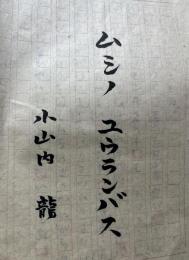 ムシノ ユウランバス
小山内 龍